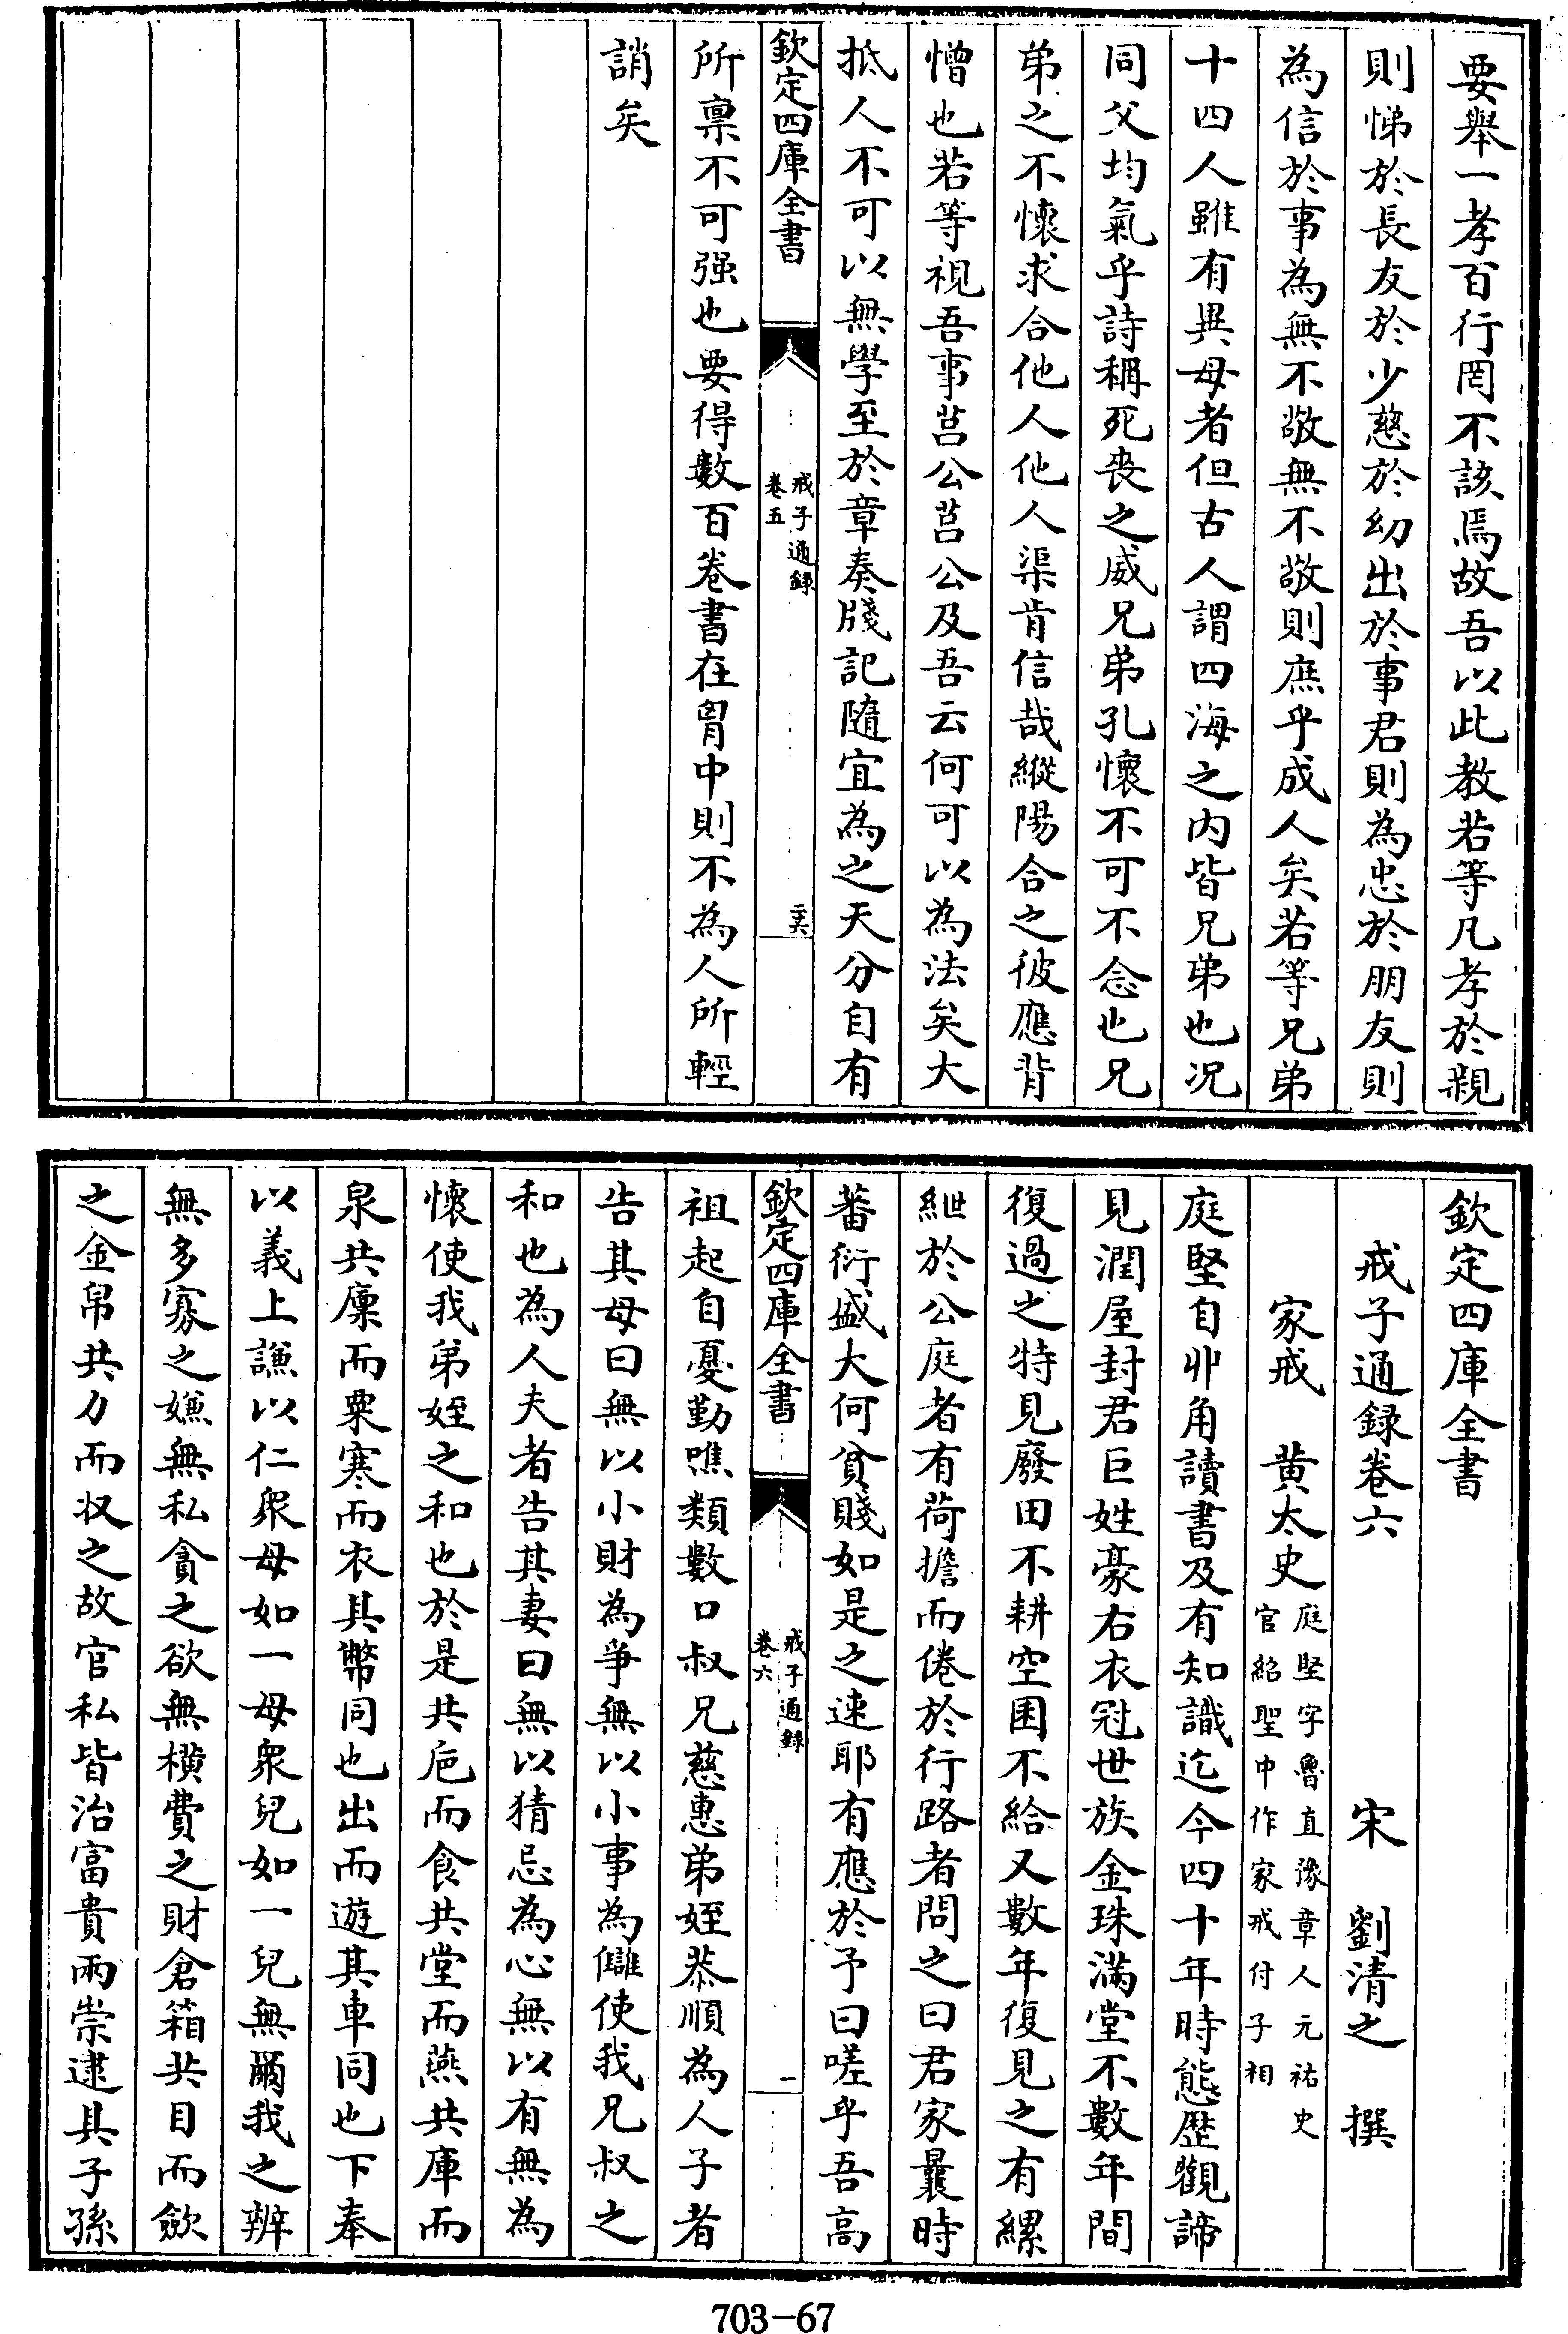 要舉一孝百行罔不該焉故吾以此教若等凡孝於親
則悌於長友於少慈於幼出於事君則為忠於朋友則
為信於事為無不敬無不敬則庶乎成人矣若等兄弟
十四人雖有異母者但古人謂四海之内皆兄弟也况
同父均氣乎詩稱死丧之威兄弟孔懷不可不念也兄
弟之不懷求合他人他人渠肯信哉縱陽合之彼應背
憎也若等視吾事莒公莒公及吾云何可以為法矣大
抵人不可以無學至於章奏牋記隨宜為之天分自有
欽定四庫全書
戒子通録
卷五
二十六
所禀不可强也要得數百卷書在胷中則不為人所輕
誚矣
欽定四庫全書
戒子通録卷六
宋 劉清之 撰
家戒 黄太史
庭堅字魯直豫章人元祐史
官紹聖中作家戒付子相
庭堅自丱角讀書及有知識迄今四十年時態歴觀諦
見潤屋封君巨姓豪右衣冠世族金珠滿堂不數年間
復過之特見廢田不耕空囷不給又數年復見之有縲
紲於公庭者有荷擔而倦於行路者問之曰君家曩時
蕃衍盛大何貧賤如是之速耶有應於予曰嗟乎吾高
欽定四庫全書
戒子通録
卷六
一
祖起自憂勤噍類數口叔兄慈惠弟姪恭順為人子者
告其母曰無以小財為爭無以小事為讎使我兄叔之
和也為人夫者告其妻曰無以猜忌為心無以有無為
懷使我弟姪之和也於是共巵而食共堂而燕共庫而
泉共廪而粟寒而衣其幣同也出而遊其車同也下奉
以義上謙以仁衆母如一母衆兒如一兒無爾我之辨
無多寡之嫌無私貪之欲無横費之財倉箱共目而歛
之金帛共力而収之故官私皆治富貴兩崇逮其子孫
703-67